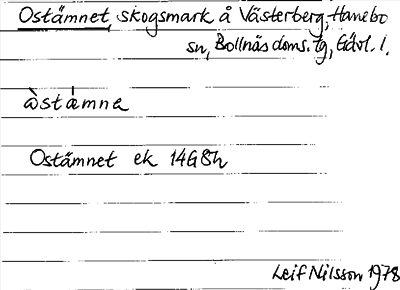 Ostämnet, skogsmark å Västerberg, Hanebo
sn, Bollnäs doms. tg, Gävl. l.
òstámna
Ostämnet ek 14G8h
Leif Nilsson 1978